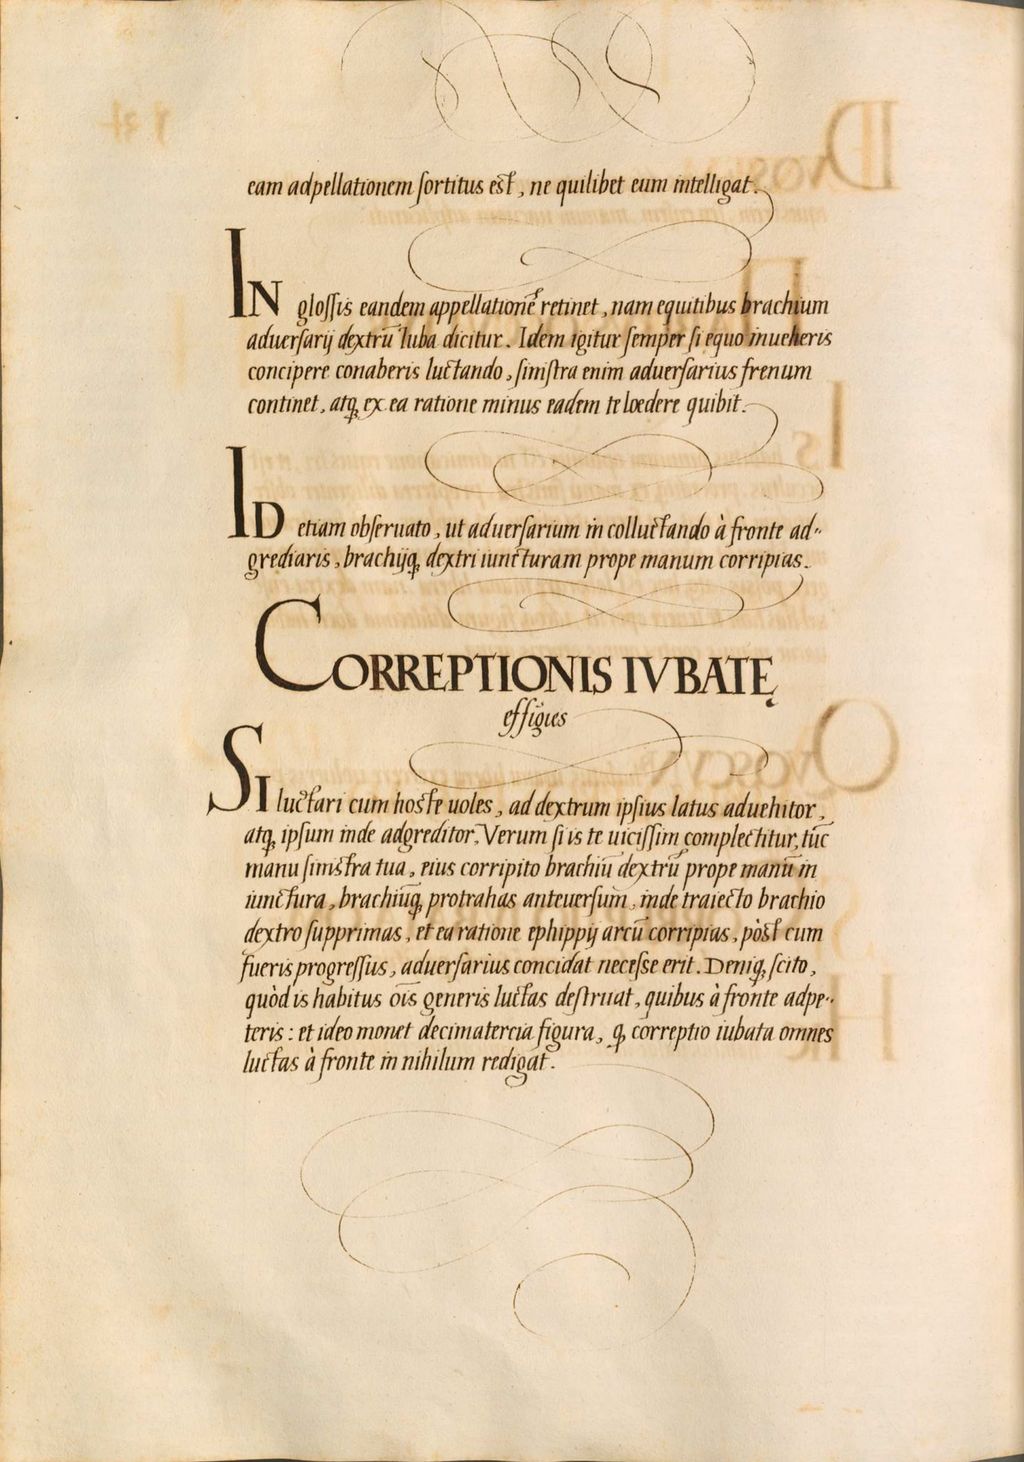 eam adpellationem sortitus est, ne quilibet eum intelligat.
IN glossis eandem appellationẽ retinet, nam equitibus brachium
aduersarij dextrũ Iuba dicitur. Idem igitur semper si equo inueheris
concipere conaberis luctando, sinistra enim aduersarius frenum
continet, atq̨ ex ea ratione minus eadem te lœdere quibit.
ID etiam obseruato, ut aduersarium in colluctando à fronte ad-
grediaris, brachijq̨ dextri iuncturam prope manum corripias.
CORREPTIONIS IVBATĘ
effigies
SI luctari cum hoste uoles, ad dextrum ipsius latus aduehitor,
atq̨ ipsum inde adgreditor, Verum si is te uicissim complectitur, tũc
manu sinistra tua, eius corripito brachiũ dextrũ prope manũ in
iunctura, brachiũq̨ protrahas anteuersum, inde traiecto brachio
dextro supprimas, et ea ratione ephippij arcũ corripias, pòst cum
fueris progressus, aduersarius concidat necesse erit. Deniq̨ scito,
quòd is habitus oĩs generis luctas destruat, quibus à fronte adpe-
teris: et ideo monet decimatercia figura, q̨ correptio iubata omnes
luctas à fronte in nihilum redigat.